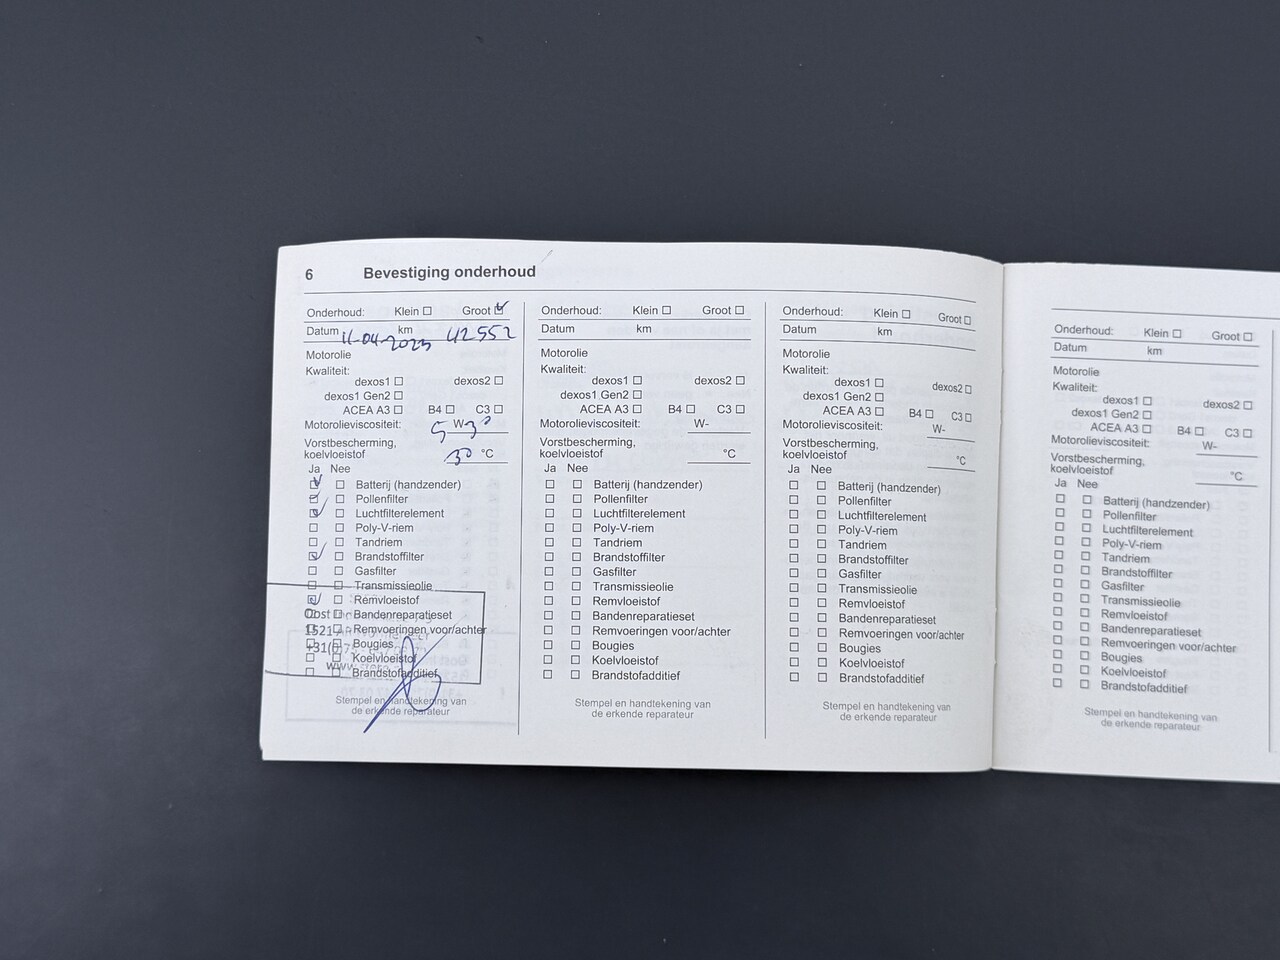 6 Bevestiging onderhoud
Onderhoud: Klein ☐ Groot ☑
Datum 11-04-2023 km 42552
Motorolie
Kwaliteit:
dexos1 ☐ dexos2 ☐
dexos1 Gen2 ☐
ACEA A3 ☐ B4 ☐ C3 ☐
Motorolieviscositeit: 5 W- 30
Vorstbescherming,
koelvloeistof 30 °C
Ja Nee
☑ ☐ Batterij (handzender)
☑ ☐ Pollenfilter
☑ ☐ Luchtfilterelement
☐ ☐ Poly-V-riem
☐ ☐ Tandriem
☑ ☐ Brandstoffilter
☐ ☐ Gasfilter
☐ ☐ Transmissieolie
☑ ☐ Remvloeistof
☐ ☐ Bandenreparatieset
☐ ☐ Remvoeringen voor/achter
☐ ☐ Bougies
☐ ☐ Koelvloeistof
☐ ☐ Brandstofadditief
Stempel en handtekening van
de erkende reparateur
Onderhoud: Klein ☐ Groot ☐
Datum km
Motorolie
Kwaliteit:
dexos1 ☐ dexos2 ☐
dexos1 Gen2 ☐
ACEA A3 ☐ B4 ☐ C3 ☐
Motorolieviscositeit: W-
Vorstbescherming,
koelvloeistof °C
Ja Nee
☐ ☐ Batterij (handzender)
☐ ☐ Pollenfilter
☐ ☐ Luchtfilterelement
☐ ☐ Poly-V-riem
☐ ☐ Tandriem
☐ ☐ Brandstoffilter
☐ ☐ Gasfilter
☐ ☐ Transmissieolie
☐ ☐ Remvloeistof
☐ ☐ Bandenreparatieset
☐ ☐ Remvoeringen voor/achter
☐ ☐ Bougies
☐ ☐ Koelvloeistof
☐ ☐ Brandstofadditief
Stempel en handtekening van
de erkende reparateur
Onderhoud: Klein ☐ Groot ☐
Datum km
Motorolie
Kwaliteit:
dexos1 ☐ dexos2 ☐
dexos1 Gen2 ☐
ACEA A3 ☐ B4 ☐ C3 ☐
Motorolieviscositeit: W-
Vorstbescherming,
koelvloeistof °C
Ja Nee
☐ ☐ Batterij (handzender)
☐ ☐ Pollenfilter
☐ ☐ Luchtfilterelement
☐ ☐ Poly-V-riem
☐ ☐ Tandriem
☐ ☐ Brandstoffilter
☐ ☐ Gasfilter
☐ ☐ Transmissieolie
☐ ☐ Remvloeistof
☐ ☐ Bandenreparatieset
☐ ☐ Remvoeringen voor/achter
☐ ☐ Bougies
☐ ☐ Koelvloeistof
☐ ☐ Brandstofadditief
Stempel en handtekening van
de erkende reparateur
Onderhoud: Klein ☐ Groot ☐
Datum km
Motorolie
Kwaliteit:
dexos1 ☐ dexos2 ☐
dexos1 Gen2 ☐
ACEA A3 ☐ B4 ☐ C3 ☐
Motorolieviscositeit: W-
Vorstbescherming,
koelvloeistof °C
Ja Nee
☐ ☐ Batterij (handzender)
☐ ☐ Pollenfilter
☐ ☐ Luchtfilterelement
☐ ☐ Poly-V-riem
☐ ☐ Tandriem
☐ ☐ Brandstoffilter
☐ ☐ Gasfilter
☐ ☐ Transmissieolie
☐ ☐ Remvloeistof
☐ ☐ Bandenreparatieset
☐ ☐ Remvoeringen voor/achter
☐ ☐ Bougies
☐ ☐ Koelvloeistof
☐ ☐ Brandstofadditief
Stempel en handtekening van
de erkende reparateur